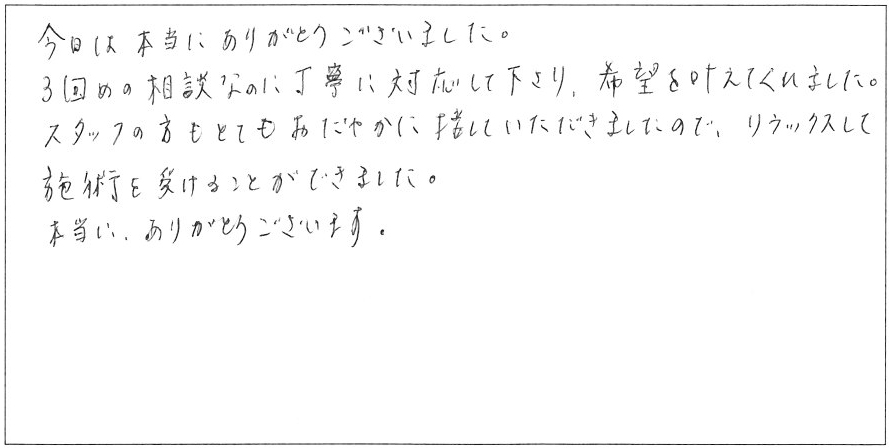 今日は本当にありがとうございました。
3回めの相談なのに丁寧に対応して下さり、希望を叶えてくれました。
スタッフの方もとてもおだやかに接していただきましたので、リラックスして
施術を受けることができました。
本当に、ありがとうございます。